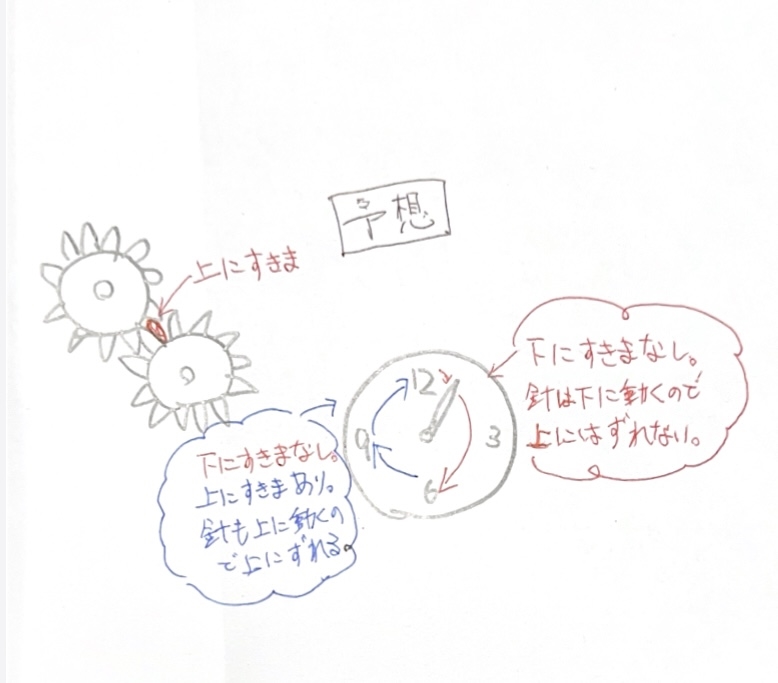 予想
上にすきま
下にすきまなし。
針は下に動くので
上にはずれない。
12
3
6
9
下にすきまなし。
上にすきまあり。
針も上に動くの
で上にずれる。